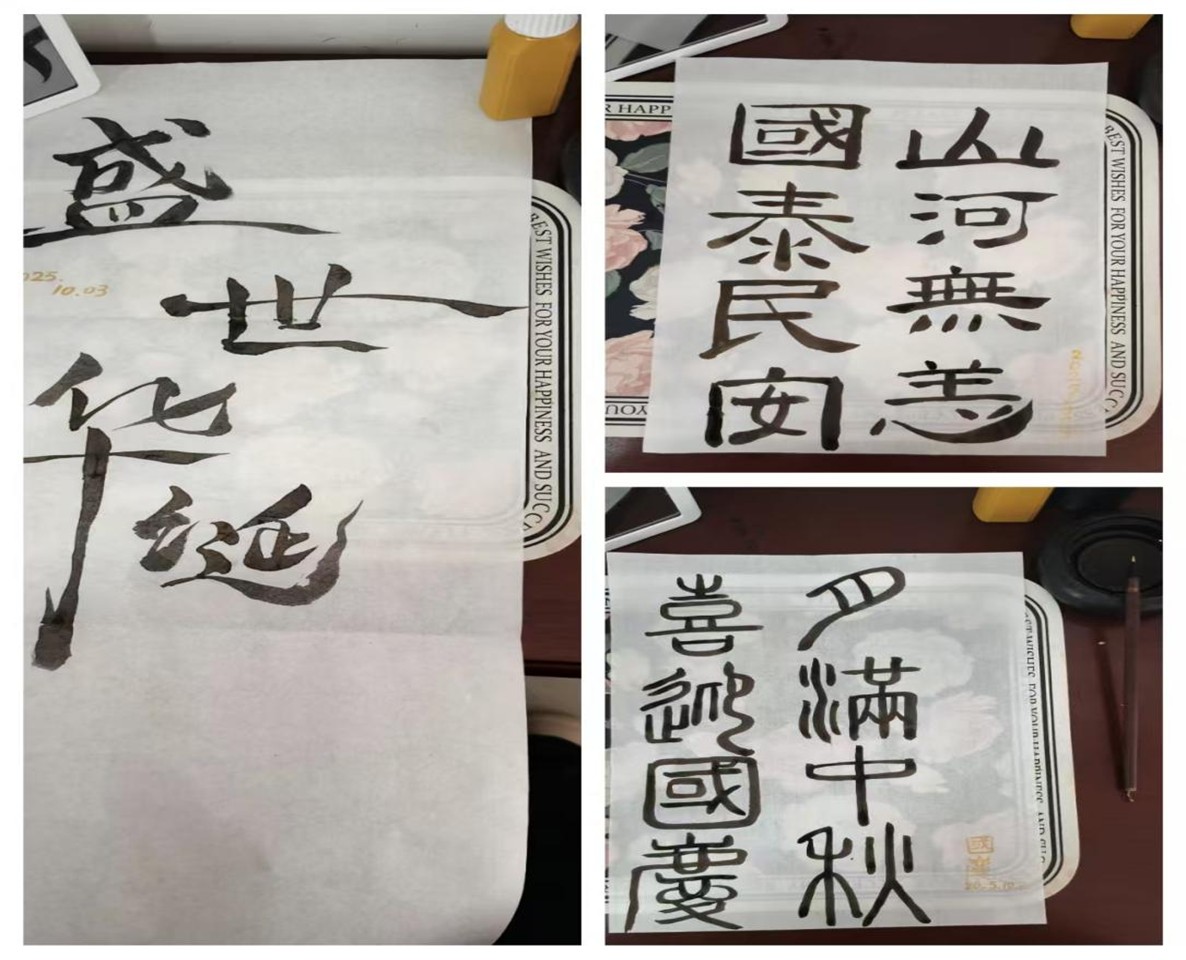 盛世
华诞
025.
10.03
BEST WISHES FOR YOUR HAPPINESS AND SUCC
山河無恙
國泰民安
R HAPP
BEST WISHES FOR YOUR HAPPINESS AND SUCC
YOU
月滿中秋
喜迎國慶
國慶
ST WISHES FOR YOUR HAPPINESS AND SUC